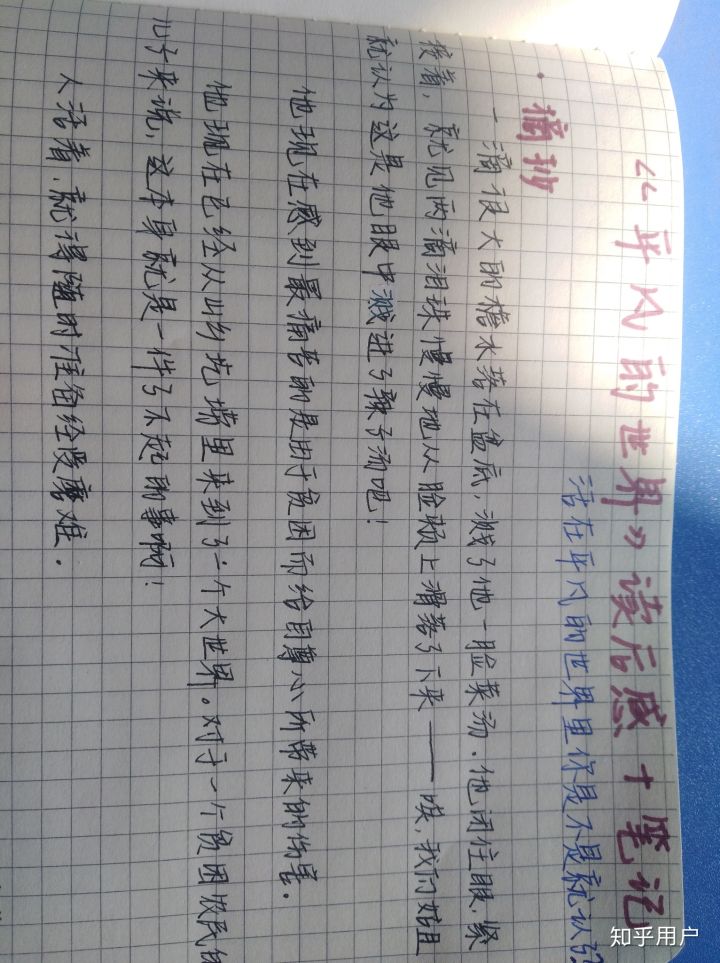 《平凡的世界》读后感+笔记
活在平凡的世界里你是不是就认了?
·摘抄
一滴很大的檐水落在盆底,溅了他一脸菜汤.他闭住眼,紧
接着,就见两滴泪珠慢慢地从脸颊上滑落了下来——唉,我们姑且
就认为这是他眼中溅进了辣子汤吧!
他现在感到最痛苦的是由于贫困而给自尊心所带来的伤害.
他现在已经从山乡圪崂里来到了一个大世界。对于一个贫困农民的
儿子来说,这本身就是一件了不起的事啊!
人活着,就得随时准备经受磨难.
知乎用户